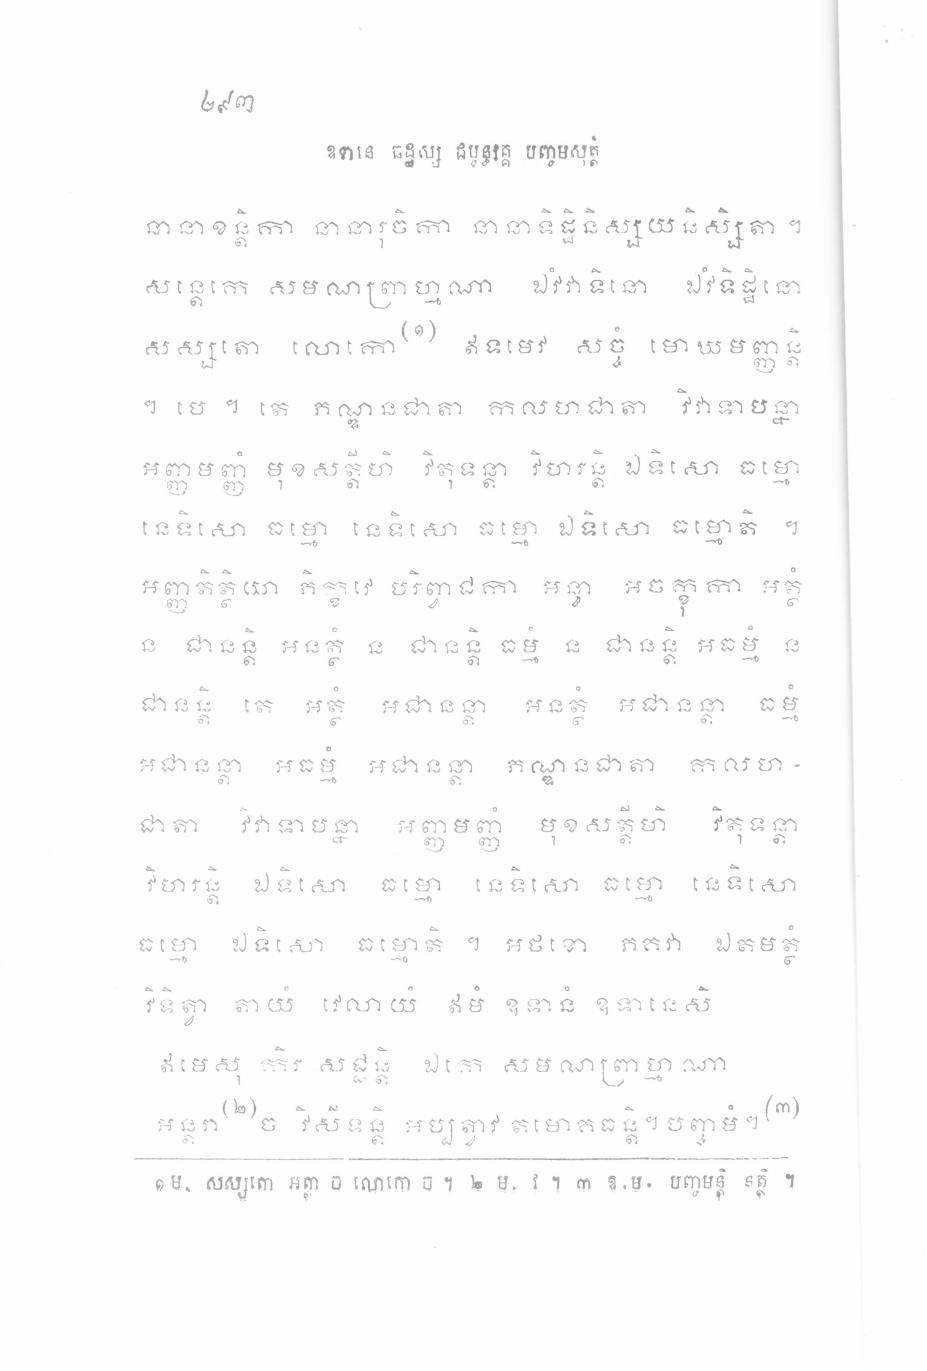 ២៩៣
ឧទានេ ជដ្ឋស្ស ជច្ចន្ធវគ្គេ បញ្ចមសុត្តំ
នានាខន្តិកា នានារុចិកា នានាទិដ្ឋិនិស្សយនិស្សិតា ។
សន្តេកេ សមណព្រាហ្មណា ឯវំវាទិនោ ឯវំទិដ្ឋិនោ
សស្សតោ លោកោ(១) ឥទមេវ សច្ចំ មោឃមញ្ញន្តិ
។ បេ ។ តេ ភណ្ឌនជាតា កលហជាតា វិវាទាបន្នា
អញ្ញមញ្ញំ មុខសត្តីហិ វិតុទន្តា វិហរន្តិ ឯទិសោ ធម្មោ
នេទិសោ ធម្មោ នេទិសោ ធម្មោ ឯទិសោ ធម្មោតិ ។
អញ្ញតិត្ថិយា ភិក្ខវេ បរិព្វាជកា អន្ធា អចក្ខុកា អត្ថំ
ន ជានន្តិ អនត្ថំ ន ជានន្តិ ធម្មំ ន ជានន្តិ អធម្មំ ន
ជានន្តិ តេ អត្ថំ អជានន្តា អនត្ថំ អជានន្តា ធម្មំ
អជានន្តា អធម្មំ អជានន្តា ភណ្ឌនជាតា កលហ-
ជាតា វិវាទាបន្នា អញ្ញមញ្ញំ មុខសត្តីហិ វិតុទន្តា
វិហរន្តិ ឯទិសោ ធម្មោ នេទិសោ ធម្មោ នេទិសោ
ធម្មោ ឯទិសោ ធម្មោតិ ។ អថខោ ភគវា ឯតមត្ថំ
វិទិត្វា តាយំ វេលាយំ ឥមំ ឧទានំ ឧទានេសិ
ឥមេសុ កិរ សជ្ជន្តិ ឯកេ សមណព្រាហ្មណា
អន្តរា(២)ច វិសីទន្តិ អប្បត្វាវ តមោគធន្តិ។ បញ្ចមំ។(៣)
១ ម. សស្សតោ អត្តា ច លោកោ ច ។ ២ ម. វ ។ ៣ ឱ.ម. បញ្ចមន្តិ នត្ថិ ។